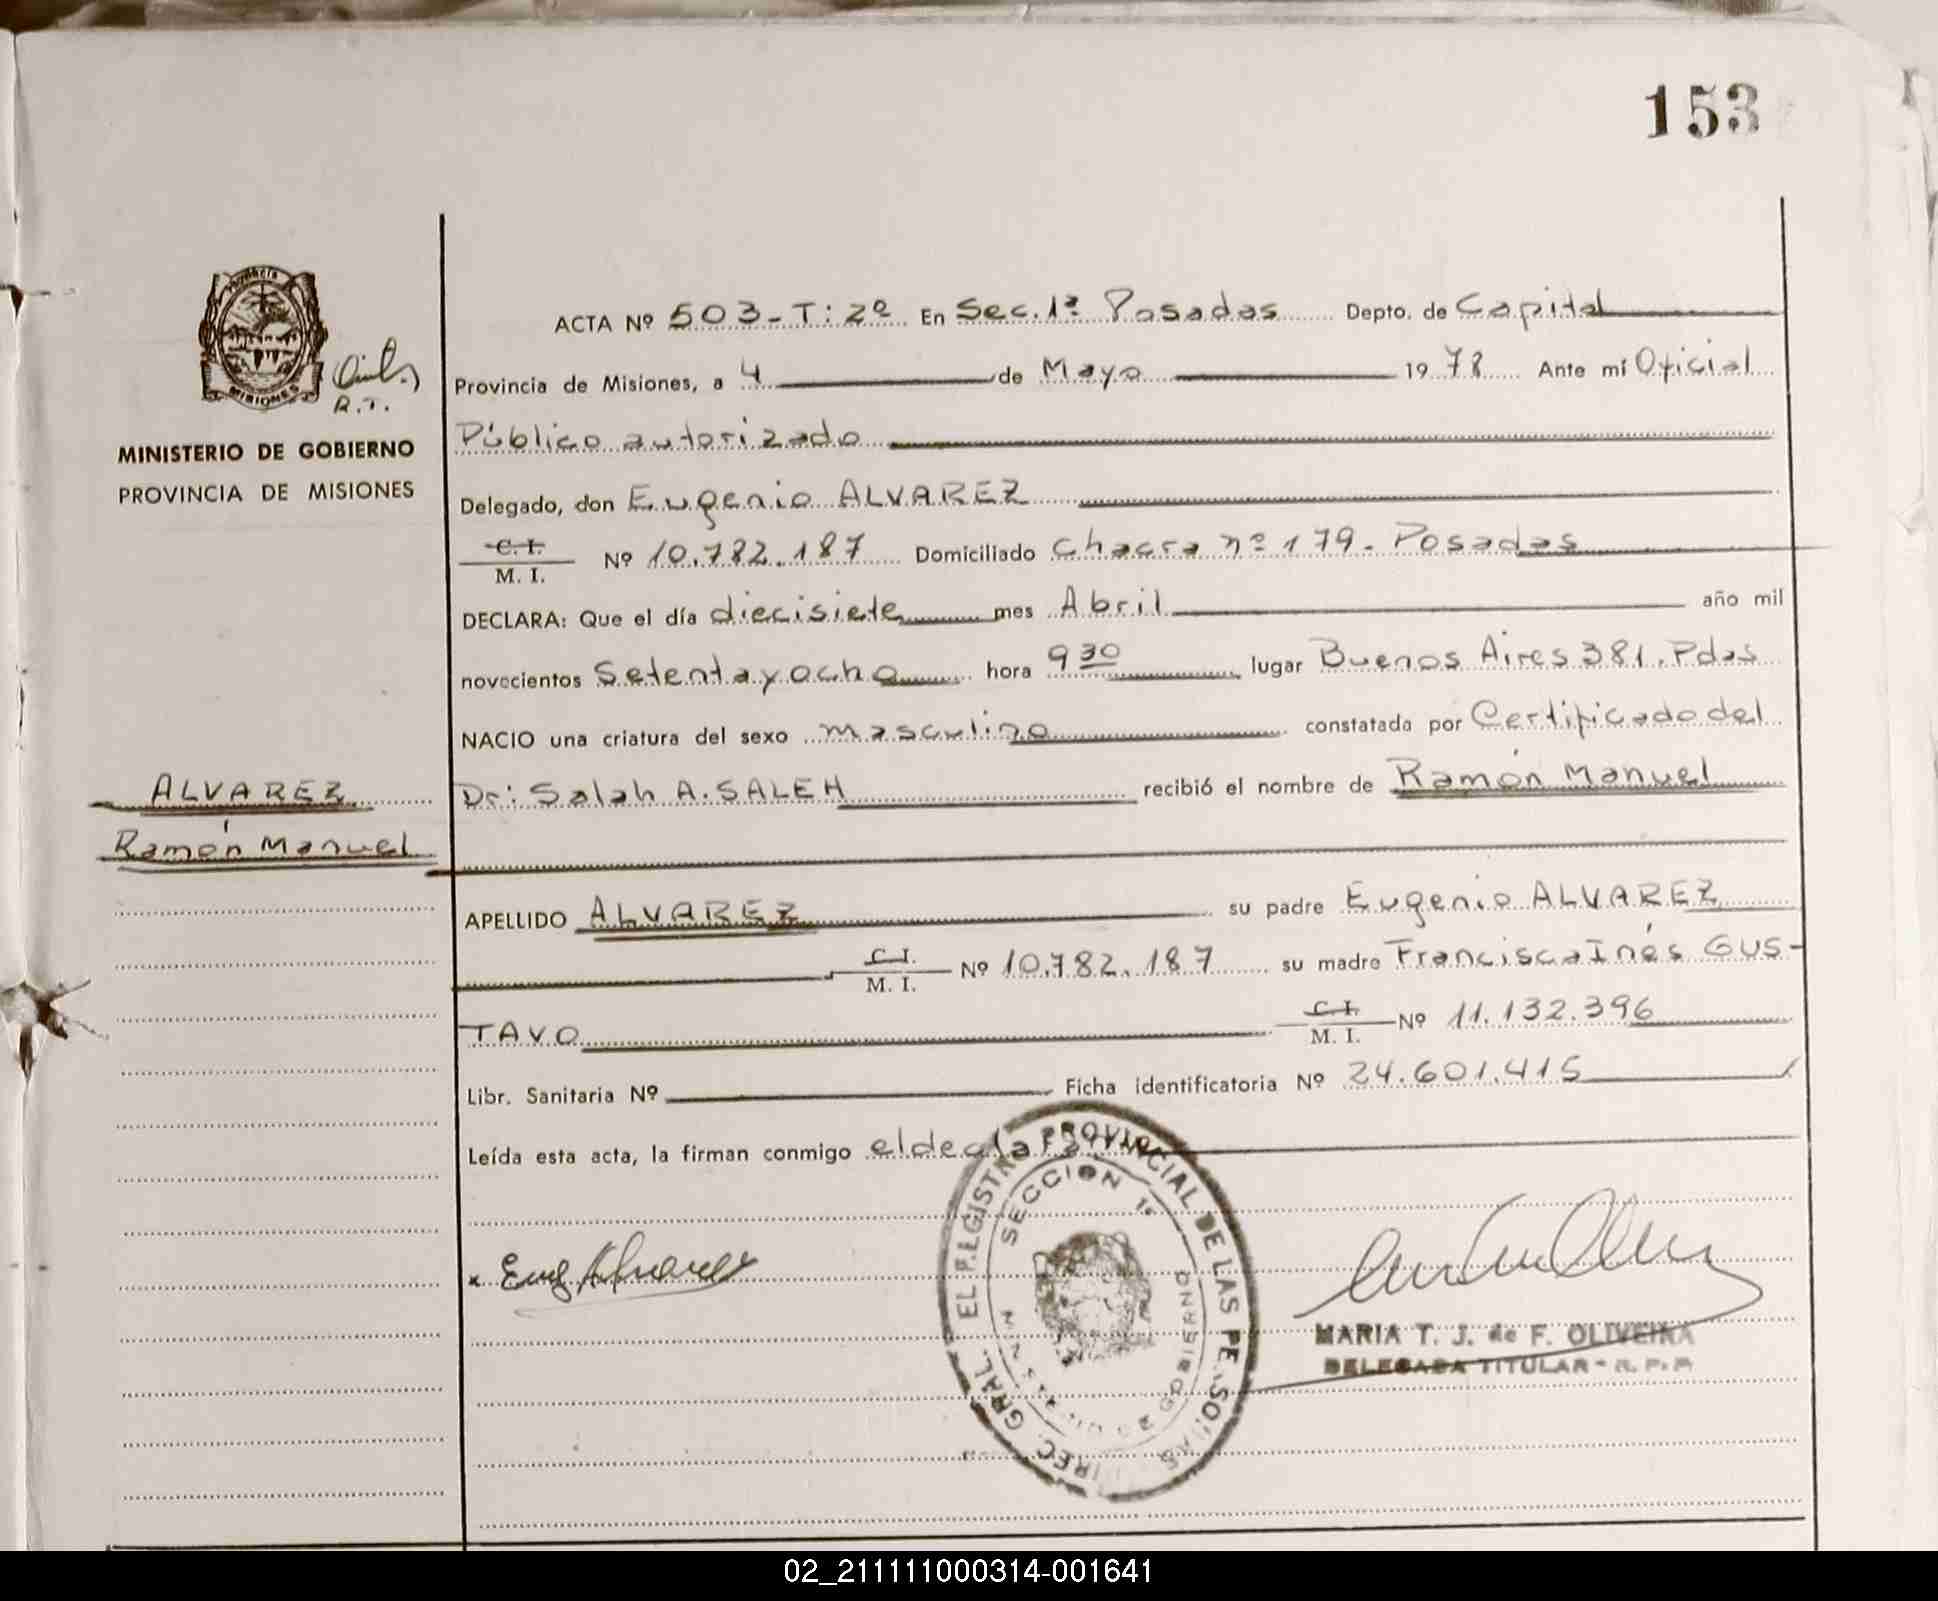 153
ACTA Nº 503-T: 2º En Sec. 1ª Posadas Depto. de Capital
Provincia de Misiones, a 4 de Mayo 1978 Ante mí Oficial
Público autorizado
R.T.
MINISTERIO DE GOBIERNO
PROVINCIA DE MISIONES
Delegado, don Eugenio ALVAREZ
C. I. M. I. Nº 10.782.187 Domiciliado Chacra nº 179. Posadas
DECLARA: Que el día diecisiete mes Abril año mil
novecientos Setenta y ocho hora 9 30 lugar Buenos Aires 381. Pdas
NACIO una criatura del sexo masculino constatada por Certificado del
Dr: Salah A. SALEH recibió el nombre de Ramón Manuel
ALVAREZ
Ramón Manuel
APELLIDO ALVAREZ su padre Eugenio ALVAREZ
C. I. M. I. Nº 10.782.187 su madre Francisca Inés GUS-
TAVO C. I. M. I. Nº 11.132.396
Libr. Sanitaria Nº Ficha identificatoria Nº 24.601.415
Leída esta acta, la firman conmigo el declarante
Eug Alvarez
DIREC. GRAL. EL REGISTRO PROVINCIAL DE LAS PERSONAS
SECCION 1ª
GOBIERNO
MARIA T. J. de F. OLIVEIRA
DELEGADA TITULAR - R. P. P
02_211111000314-001641